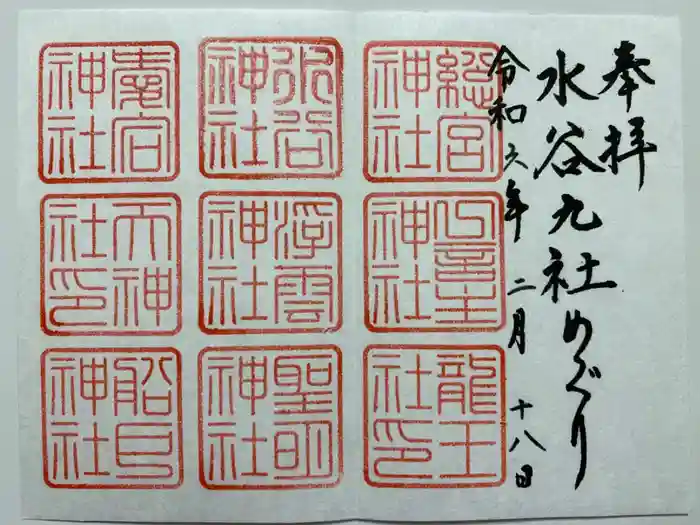 奉拝
水谷九社めぐり
令和六年二月十八日
総宮神社
水谷神社
八龍神社
浮雲神社
天神社印
龍王社印
聖明神社
船戸神社